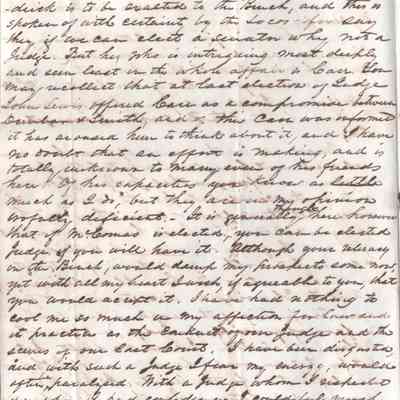 -drick is to be exacted to the Bench, and this is
spoken of with certainty by the Locos - for say
they if we can elect a senator why not a
Judge. But he, who is intriguing most deeply
and seen least in the whole affair is Carr. You
may recollect that at last election of Judge
John Lewis offered Carr as a compromise between
& Smith, and of this Carr was informed
it has aroused him to think about it, and I have
no doubt that an effort is making, and is
totally unknown to many even of his friends
here. Of his capacities you know as little
much as I do, but they are in my opinion
wofully deficient. - It is generally here however
that if McComas is elected, you can be elected
Judge, if you will have it. Although your
on the Bench, would damp my prospects some now,
yet with all my heart I wish, if agreeable to you, that
you would accept it. I have had nothing to
cool me so much in my affection for law and
it practice as the conduct of our Judge and the
scenes of our last Court. I have been disgusted
and with such a Judge I fear my energy, would
often paralized. With a Judge whom I respected
I had confidence I could